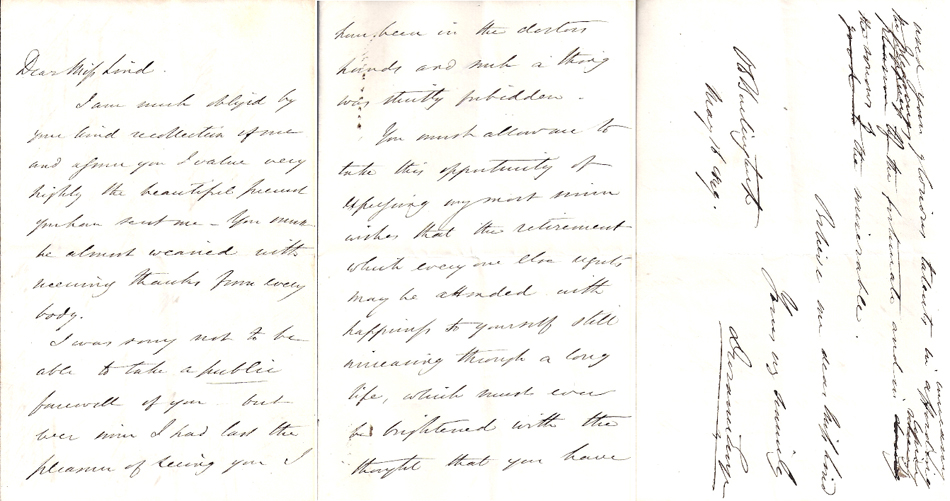 Dear Miss Lind.
I am much obliged by
your kind recollection of me
and assure you I value very
highly the beautiful present
you have sent me - You must
be almost wearied with
receiving thanks from every
body.
I was sorry not to be
able to take a public
farewell of you but
ever since I had last the
pleasure of seeing you I
have been in the doctors
hands and such a thing
was strictly forbidden.
You must allow me to
take this opportunity of
expressing my most sincere
wishes that the retirement
which every one else regrets
may be attended with
happiness to yourself still
increasing through a long
life, which must ever
be brightened with the
thought that you have
used your glorious talents in
the of the fortunate, and in
the sorrows of the miserable.
Believe me dear Miss Lind
Yours very sincerely
May 16